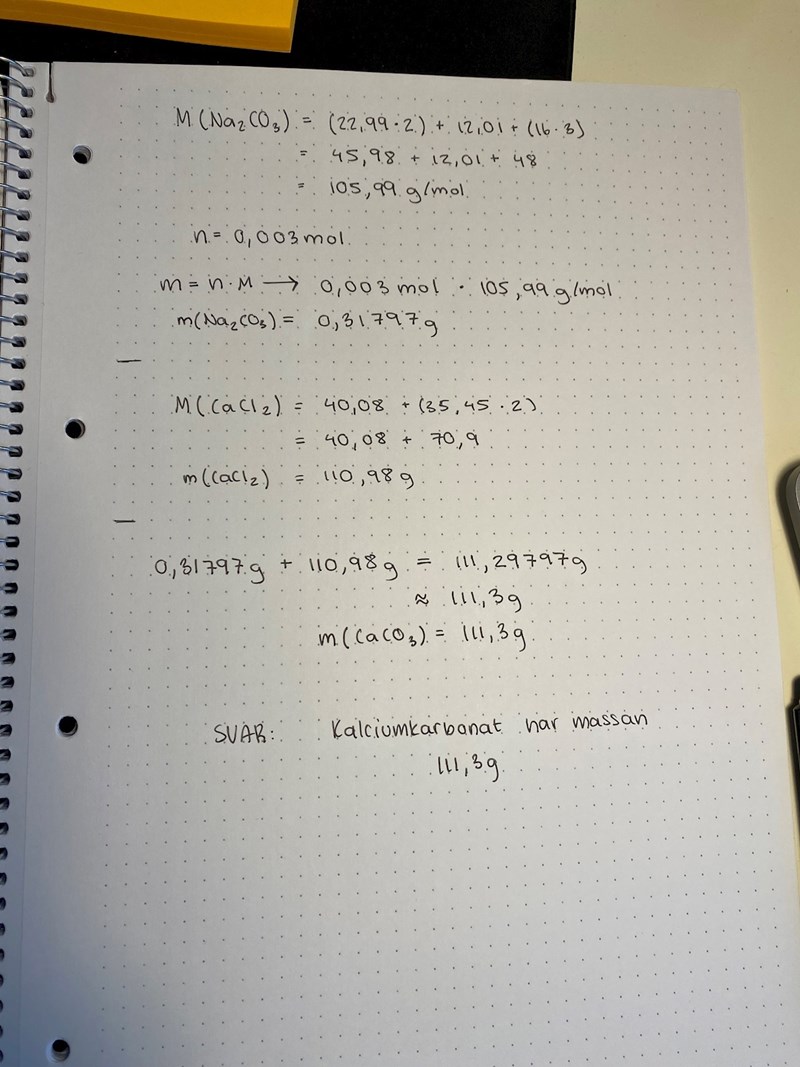 M(Na₂CO₃) = (22,99·2) + 12,01 + (16·3)
= 45,98 + 12,01 + 48
= 105,99 g/mol
n = 0,003 mol
m = n·M → 0,003 mol · 105,99 g/mol
m(Na₂CO₃) = 0,31797g
—
M(CaCl₂) = 40,08 + (35,45·2)
= 40,08 + 70,9
m(CaCl₂) = 110,98g
—
0,31797g + 110,98g = 111,29797g
≈ 111,3g
m(CaCO₃) = 111,3g
SVAR: Kalciumkarbonat har massan
111,3g